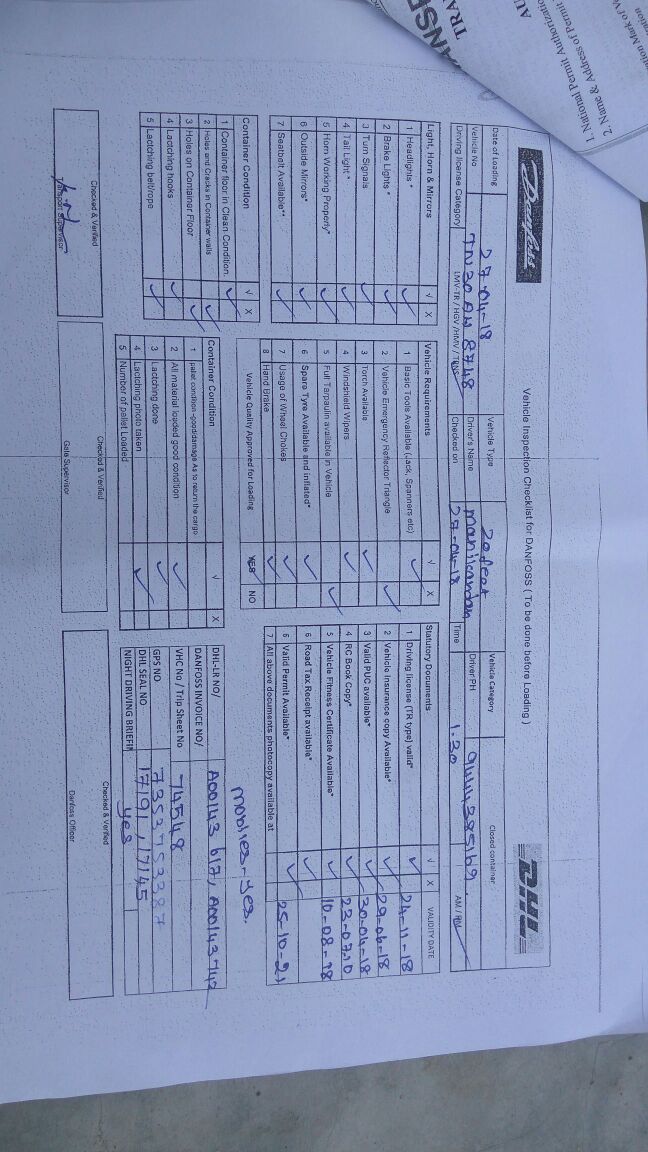 TRANSP
TRA
AU
1. National Permit Authorization
2. Name & Address of Permit
ation Mark of V
Danfoss
Vehicle Inspection Checklist for DANFOSS ( To be done before Loading )
DHL
Date of Loading 27-04-18 Vehicle Type 20 feet Vehicle Category Closed container
Vehicle No TN30AH 8748 Driver's Name manikandan Driver PH 9444385169
Driving license Category LMV-TR / HGV /HMV / TRNS Checked on 27-04-18 Time 1.30 AM / PM
Light, Horn & Mirrors √ X
1 Headlights *
2 Brake Lights *
3 Turn Signals
4 Tail Light *
5 Horn Working Properly*
6 Outside Mirrors*
7 Seatbelt Available**
Vehicle Requirements √ X
1 Basic Tools Available (Jack, Spanners etc)
2 Vehicle Emergency Reflector Triangle
3 Torch Available
4 Windshield Wipers
5 Full Tarpaulin available in Vehicle
6 Spare Tyre Available and inflated*
7 Usage of Wheel Chokes
8 Hand Brake
Vehicle Quality Approved for Loading YES NO
Statutory Documents √ X VALIDITY DATE
1 Driving license (TR type) valid* 24-11-18
2 Vehicle Insurance copy Available* 29-06-18
3 Valid PUC available* 30-04-18
4 RC Book Copy* 23-07-10
5 Vehicle Fitness Certificate Available* 10-08-18
6 Road Tax Receipt available*
6 Valid Permit Available* 25-10-21
7 All above documents photocopy available at
mobiles - yes.
Container Condition √ X
1 Container floor in Clean Condition.
2 Holes and Cracks in Container walls
3 Holes on Container Floor
4 Lactching hooks
5 Lactching belt/rope
Container Condition √ X
1 pallet condition -good/damage As to return the cargo
2 All material loaded good condition
3 Lactching done
4 Lactching photo taken
5 Number of pallet Loaded
DHL-LR NO/
DANFOSS INVOICE NO/ A00143 617, A00143742
VHC No / Trip Sheet No 74548
GPS NO 7353753387
DHL SEAL NO 17191, 17145
NIGHT DRIVING BRIEFIN yes
Checked & Verified
Transport Supervisor
Checked & Verified
Gate Supervisor
Checked & Verified
Danfoss Officer